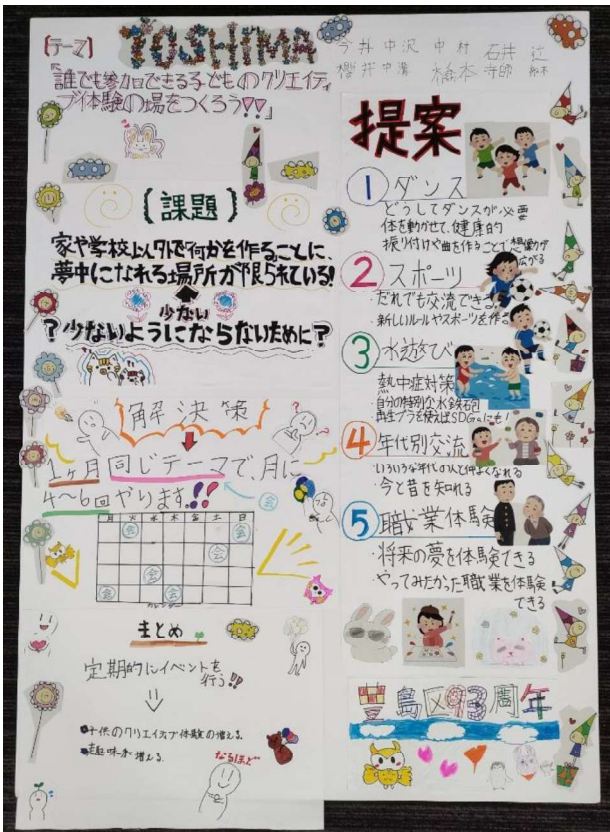 【テーマ】
TOSHIMA
今井 中沢 中村 石井 辻
櫻井 中溝 橋本 寺師 鈴木
「誰でも参加できる子どものクリエイティ
ブ体験の場をつくろう♡♡」
【課題】
家や学校以外で何かを作ることに、
夢中になれる場所が限られている!
少ない
?少ないようにならないために?
解決策
1ヶ月同じテーマで、月に
4〜6回やります!!
会
月 火 水 木 金 土 日
会 会
会
会
会 会
カレンダー
まとめ
定期的にイベントを
行う!!
子供のクリエイティブ体験の増える
趣味が増える
なるほど
提案
1 ダンス
どうしてダンスが必要
体を動かせて、健康的
振り付けや曲を作ることで想像が
広がる
2 スポーツ
・だれでも交流できる
・新しいルールやスポーツを作る
3 水遊び
熱中症対策
自分の特別な水鉄砲
再生プラを使えばSDGsにも!
4 年代別交流
・いろいろな年代の人と仲よくなれる
・今と昔を知れる
5 職業体験
・将来の夢を体験できる
・やってみたかった職業を体験
できる
豊島区93周年